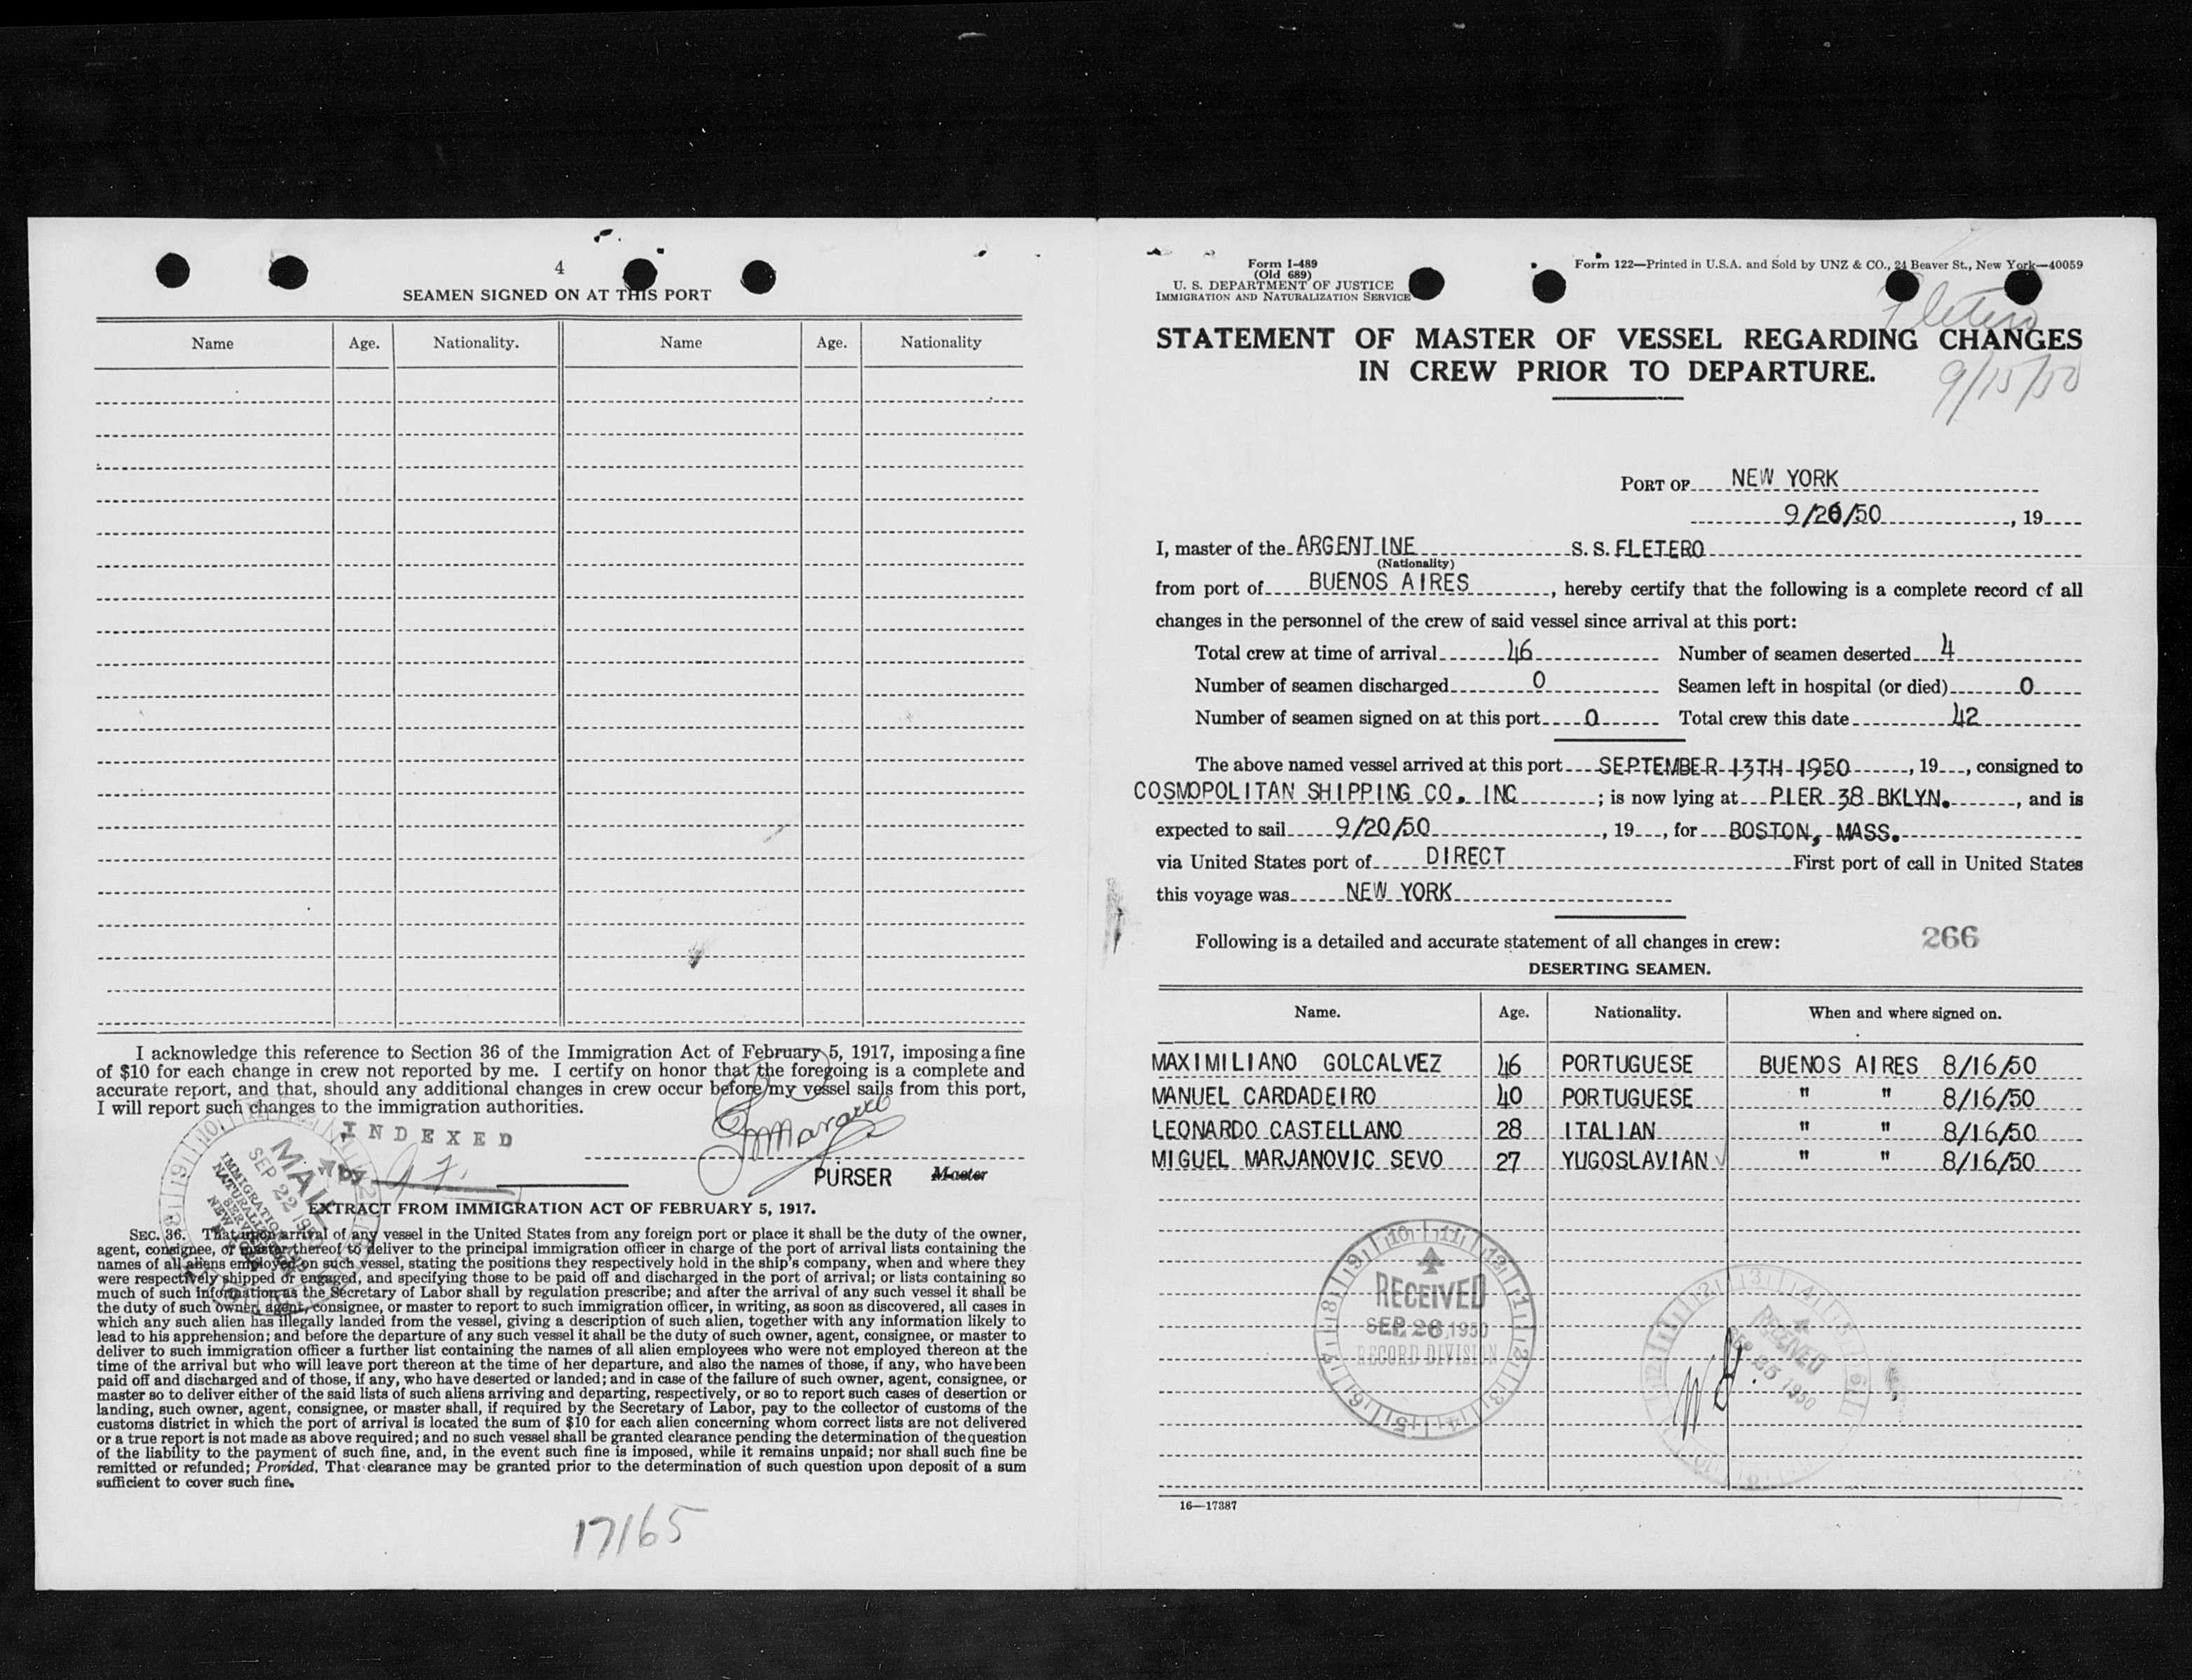 4
SEAMEN SIGNED ON AT THIS PORT
Name Age. Nationality. Name Age. Nationality
I acknowledge this reference to Section 36 of the Immigration Act of February 5, 1917, imposing a fine
of $10 for each change in crew not reported by me. I certify on honor that the foregoing is a complete and
accurate report, and that, should any additional changes in crew occur before my vessel sails from this port,
I will report such changes to the immigration authorities.
INDEXED
by
PURSER Master
MAIL
SEP 22 19
IMMIGRATION
NATURALIZATION
SERVICE
NEW
EXTRACT FROM IMMIGRATION ACT OF FEBRUARY 5, 1917.
SEC. 36. That upon arrival of any vessel in the United States from any foreign port or place it shall be the duty of the owner,
agent, consignee, or master thereof to deliver to the principal immigration officer in charge of the port of arrival lists containing the
names of all aliens employed on such vessel, stating the positions they respectively hold in the ship's company, when and where they
were respectively shipped or engaged, and specifying those to be paid off and discharged in the port of arrival; or lists containing so
much of such information as the Secretary of Labor shall by regulation prescribe; and after the arrival of any such vessel it shall be
the duty of such owner, agent, consignee, or master to report to such immigration officer, in writing, as soon as discovered, all cases in
which any such alien has illegally landed from the vessel, giving a description of such alien, together with any information likely to
lead to his apprehension; and before the departure of any such vessel it shall be the duty of such owner, agent, consignee, or master to
deliver to such immigration officer a further list containing the names of all alien employees who were not employed thereon at the
time of the arrival but who will leave port thereon at the time of her departure, and also the names of those, if any, who have been
paid off and discharged and of those, if any, who have deserted or landed; and in case of the failure of such owner, agent, consignee, or
master so to deliver either of the said lists of such aliens arriving and departing, respectively, or so to report such cases of desertion or
landing, such owner, agent, consignee, or master shall, if required by the Secretary of Labor, pay to the collector of customs of the
customs district in which the port of arrival is located the sum of $10 for each alien concerning whom correct lists are not delivered
or a true report is not made as above required; and no such vessel shall be granted clearance pending the determination of the question
of the liability to the payment of such fine, and, in the event such fine is imposed, while it remains unpaid; nor shall such fine be
remitted or refunded; Provided, That clearance may be granted prior to the determination of such question upon deposit of a sum
sufficient to cover such fine.
17165
Form I-489
(Old 689)
U. S. DEPARTMENT OF JUSTICE
IMMIGRATION AND NATURALIZATION SERVICE
Form 122—Printed in U.S.A. and Sold by UNZ & CO., 24 Beaver St., New York—40059
Fletero
STATEMENT OF MASTER OF VESSEL REGARDING CHANGES
IN CREW PRIOR TO DEPARTURE.
9/15/50
PORT OF NEW YORK
9/20/50, 19
I, master of the ARGENTINE S. S. FLETERO
(Nationality)
from port of BUENOS AIRES, hereby certify that the following is a complete record of all
changes in the personnel of the crew of said vessel since arrival at this port:
Total crew at time of arrival 46 Number of seamen deserted 4
Number of seamen discharged 0 Seamen left in hospital (or died) 0
Number of seamen signed on at this port 0 Total crew this date 42
The above named vessel arrived at this port SEPTEMBER 13TH 1950, 19, consigned to
COSMOPOLITAN SHIPPING CO. INC; is now lying at PIER 38 BKLYN., and is
expected to sail 9/20/50, 19, for BOSTON, MASS.
via United States port of DIRECT First port of call in United States
this voyage was NEW YORK
Following is a detailed and accurate statement of all changes in crew: 266
DESERTING SEAMEN.
Name. Age. Nationality. When and where signed on.
MAXIMILIANO GOLCALVEZ 46 PORTUGUESE BUENOS AIRES 8/16/50
MANUEL CARDADEIRO 40 PORTUGUESE " " 8/16/50
LEONARDO CASTELLANO 28 ITALIAN " " 8/16/50
MIGUEL MARJANOVIC SEVO 27 YUGOSLAVIAN " " 8/16/50
RECEIVED
SEP 26 1950
RECORD DIVISION
RECEIVED
SEP 25 1950
16—17387